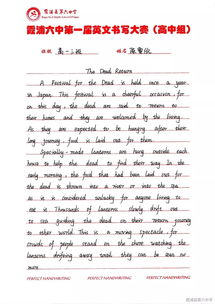 霞浦第六中学
霞浦六中第一届英文书写大赛（高中组）
班级 高一三班 姓名
The Dead Return
A Festival for the Dead is held once a year
in Japan. This festival is a cheerful occasion, for
on this day, the dead are said to return to
their homes and they are welcomed by the living.
As they are expected to be hungry after their
long journey, food is laid out for them.
Specially-made lanterns are hung outside each
house to help the dead to find their way. In the
early morning, the food that had been laid out for
the dead is thrown into a river or into the sea
as it is considered unlucky for anyone living to
Thousands of lanterns slowly drift out
to sea guiding the dead on their return journey
to other world. This is a moving spectacle for
crowds of people stand on the shore watching the
lanterns drifting away until they can be seen no
more.
PERFECT HANDWRITING PERFECT HANDWRITING PERFECT HANDWRITING